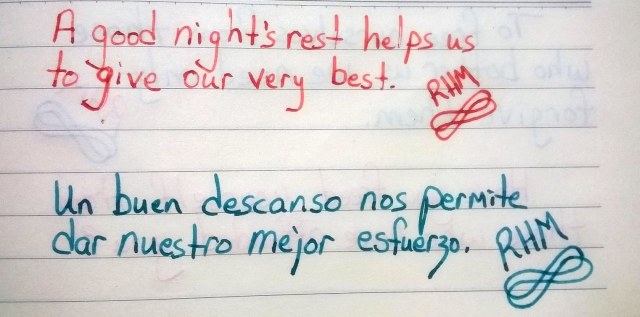 A good night's rest helps us
to give our very best.
RHM
Un buen descanso nos permite
dar nuestro mejor esfuerzo.
RHM